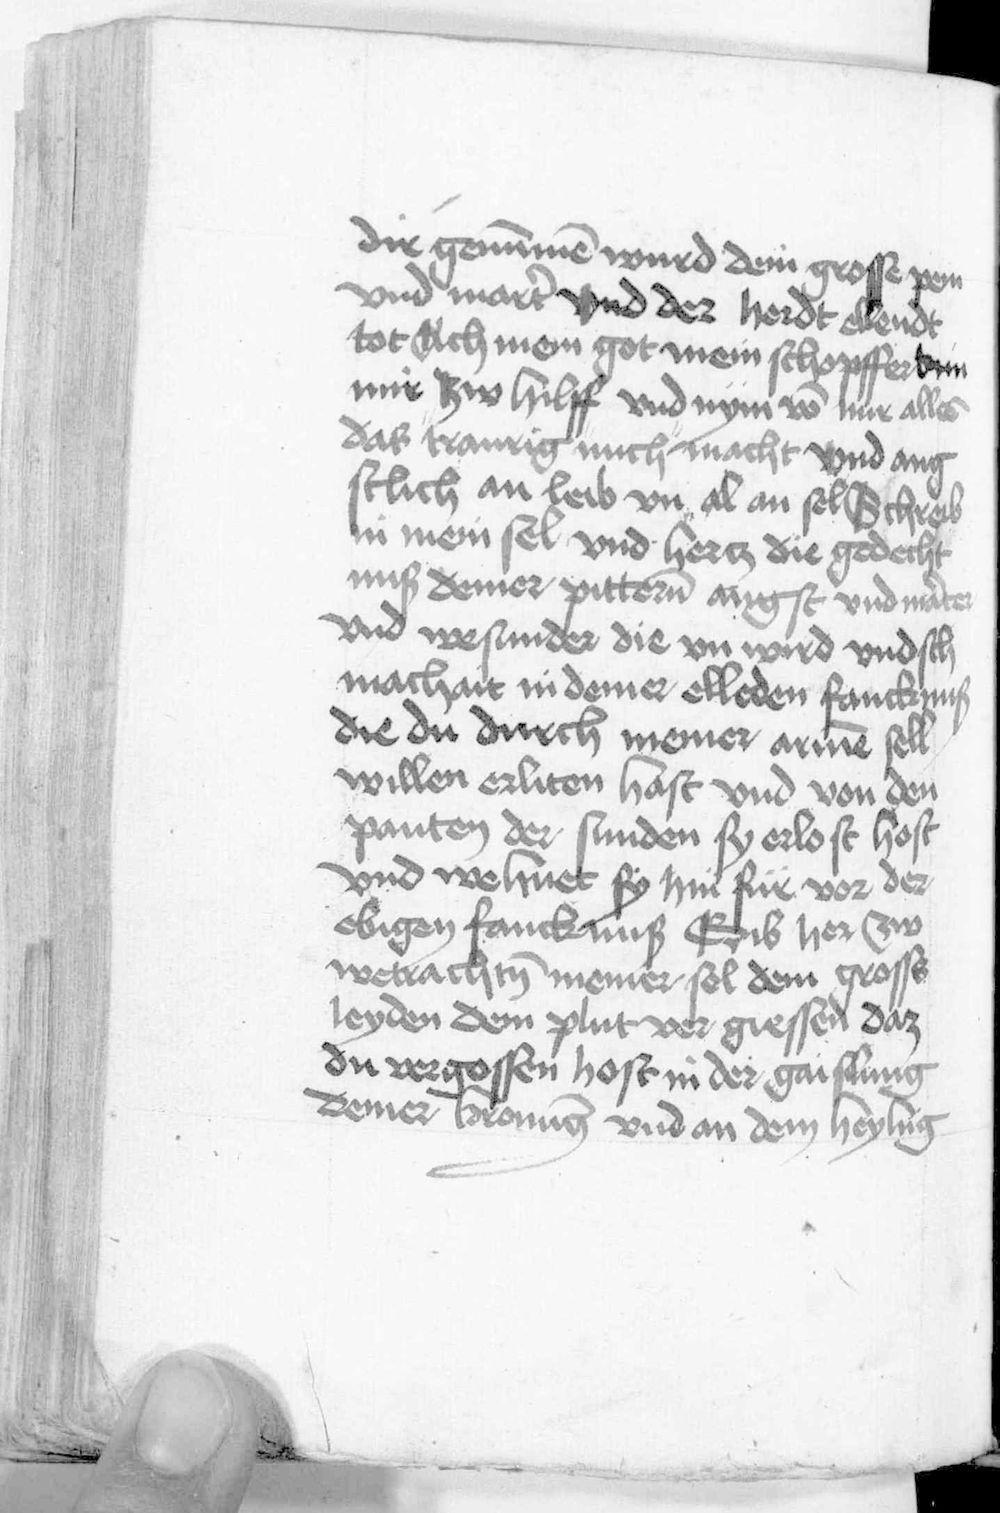 dir genūmē wurd dein grosse pein
vnd mart̄ vnd der herdt ellendt
tot Ach mein got mein schopffer kum
mir zw hilff vnd nÿm vō mir alles
das traurig mich macht vnd ang
stlich an leib vn al an sel Schreib
in mein sel vnd hertz die gedecht
nuß deiner pittern̄ angst vnd mȧrter
vnd wesunder die vn wird vnd sch
machait in deiner elleden fancknuß
die du durch meiner armē sell
willen erliten hast vnd von den
panten der sunden sy erlost host
vnd wehuet sy hin für vor der
ebigen fancknuß Erib her zw
wetrachtn̄ meiner sel dein grosse
leyden dein plut ver giessen daz
du vergossen host in der gaislung
deiner kronūg vnd an dem heylīg